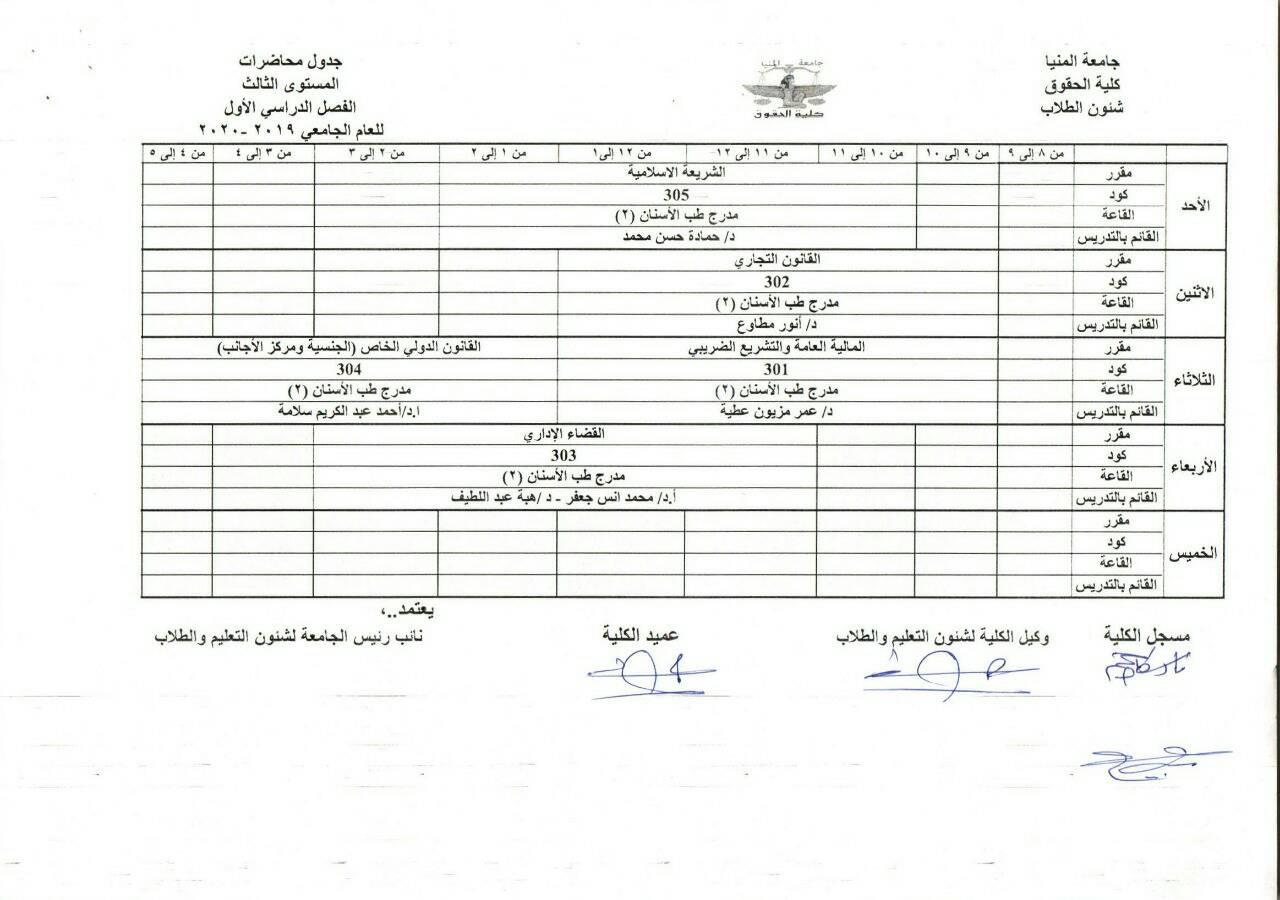 جامعة المنيا
كلية الحقوق
شئون الطلاب
جامعة المنيا
كلية الحقوق
جدول محاضرات
المستوى الثالث
الفصل الدراسي الأول
للعام الجامعي ٢٠١٩ -٢٠٢٠
من ٨ إلى ٩ من ٩ إلى ١٠ من ١٠ إلى ١١ من ١١ إلى ١٢ من ١٢ إلى١ من ١ إلى ٢ من ٢ إلى ٣ من ٣ إلى ٤ من ٤ إلى ٥
الأحد
مقرر الشريعة الاسلامية
كود 305
القاعة مدرج طب الأسنان (٢)
القائم بالتدريس د/ حمادة حسن محمد
الاثنين
مقرر القانون التجاري
كود 302
القاعة مدرج طب الأسنان (٢)
القائم بالتدريس د/ أنور مطاوع
الثلاثاء
مقرر المالية العامة والتشريع الضريبي القانون الدولي الخاص (الجنسية ومركز الأجانب)
كود 301 304
القاعة مدرج طب الأسنان (٢) مدرج طب الأسنان (٢)
القائم بالتدريس د/ عمر مزيون عطية ا.د/أحمد عبد الكريم سلامة
الأربعاء
مقرر القضاء الإداري
كود 303
القاعة مدرج طب الأسنان (٢)
القائم بالتدريس أ.د/ محمد انس جعفر - د /هبة عبد اللطيف
الخميس
مقرر
كود
القاعة
القائم بالتدريس
يعتمد..،
مسجل الكلية وكيل الكلية لشئون التعليم والطلاب عميد الكلية نائب رئيس الجامعة لشئون التعليم والطلاب